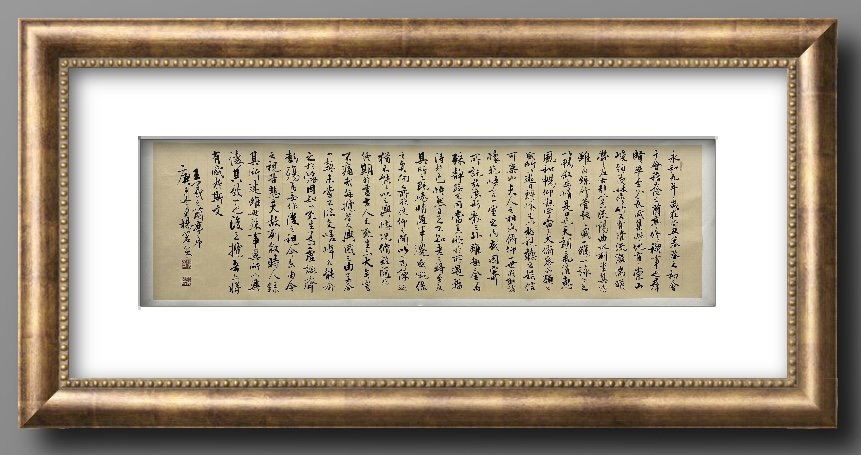 永和九年歲在癸丑暮春之初會
于會稽山陰之蘭亭修禊事也群
賢畢至少長咸集此地有崇山
峻領茂林脩竹又有清流激湍暎
帶左右引以為流觴曲水列坐其次
雖無絲竹管弦之盛一觴一詠亦足
以暢敘幽情是日也天朗氣清惠
風和暢仰觀宇宙之大俯察品類之
盛所以遊目騁懷足以極視聽之娛信
可樂也夫人之相與俯仰一世或取諸
懷抱悟言一室之內或因寄所
託放浪形骸之外雖趣舍萬
殊靜躁不同當其欣於所遇暫
得於己快然自足不知老之將至及
其所之既倦情隨事遷感慨係
之矣向之所欣俛仰之間以為陳迹
猶不能不以之興懷況脩短隨化
終期於盡古人云死生亦大矣豈
不痛哉每攬昔人興感之由若合
一契未嘗不臨文嗟悼不能喻
之於懷固知一死生為虛誕齊
彭殤為妄作後之視今亦由今
之視昔悲夫故列敘時人錄
其所述雖世殊事異所以興
懷其致一也後之攬者亦將
有感於斯文
王羲之蘭亭序
庚子年